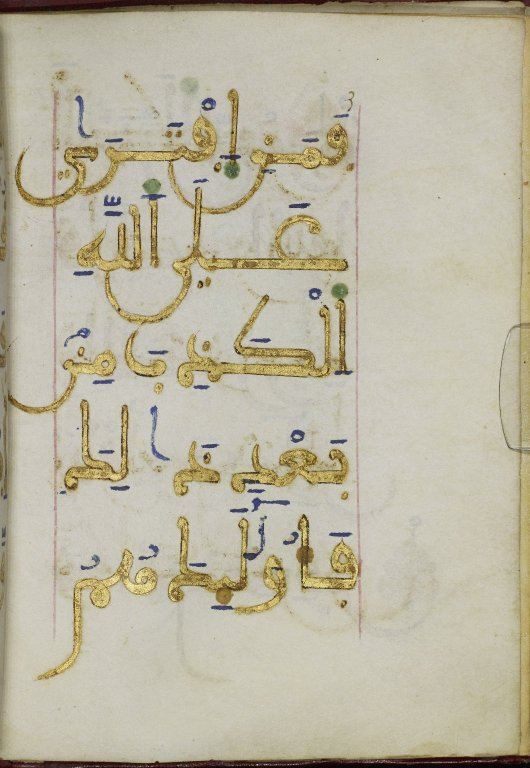 فَمَنِ ٱفْتَرَىٰ
عَلَى ٱللَّهِ
ٱلْكَذِبَ مِنْ
بَعْدِ ذَٰلِكَ
فَأُو۟لَٰٓئِكَ هُمُ